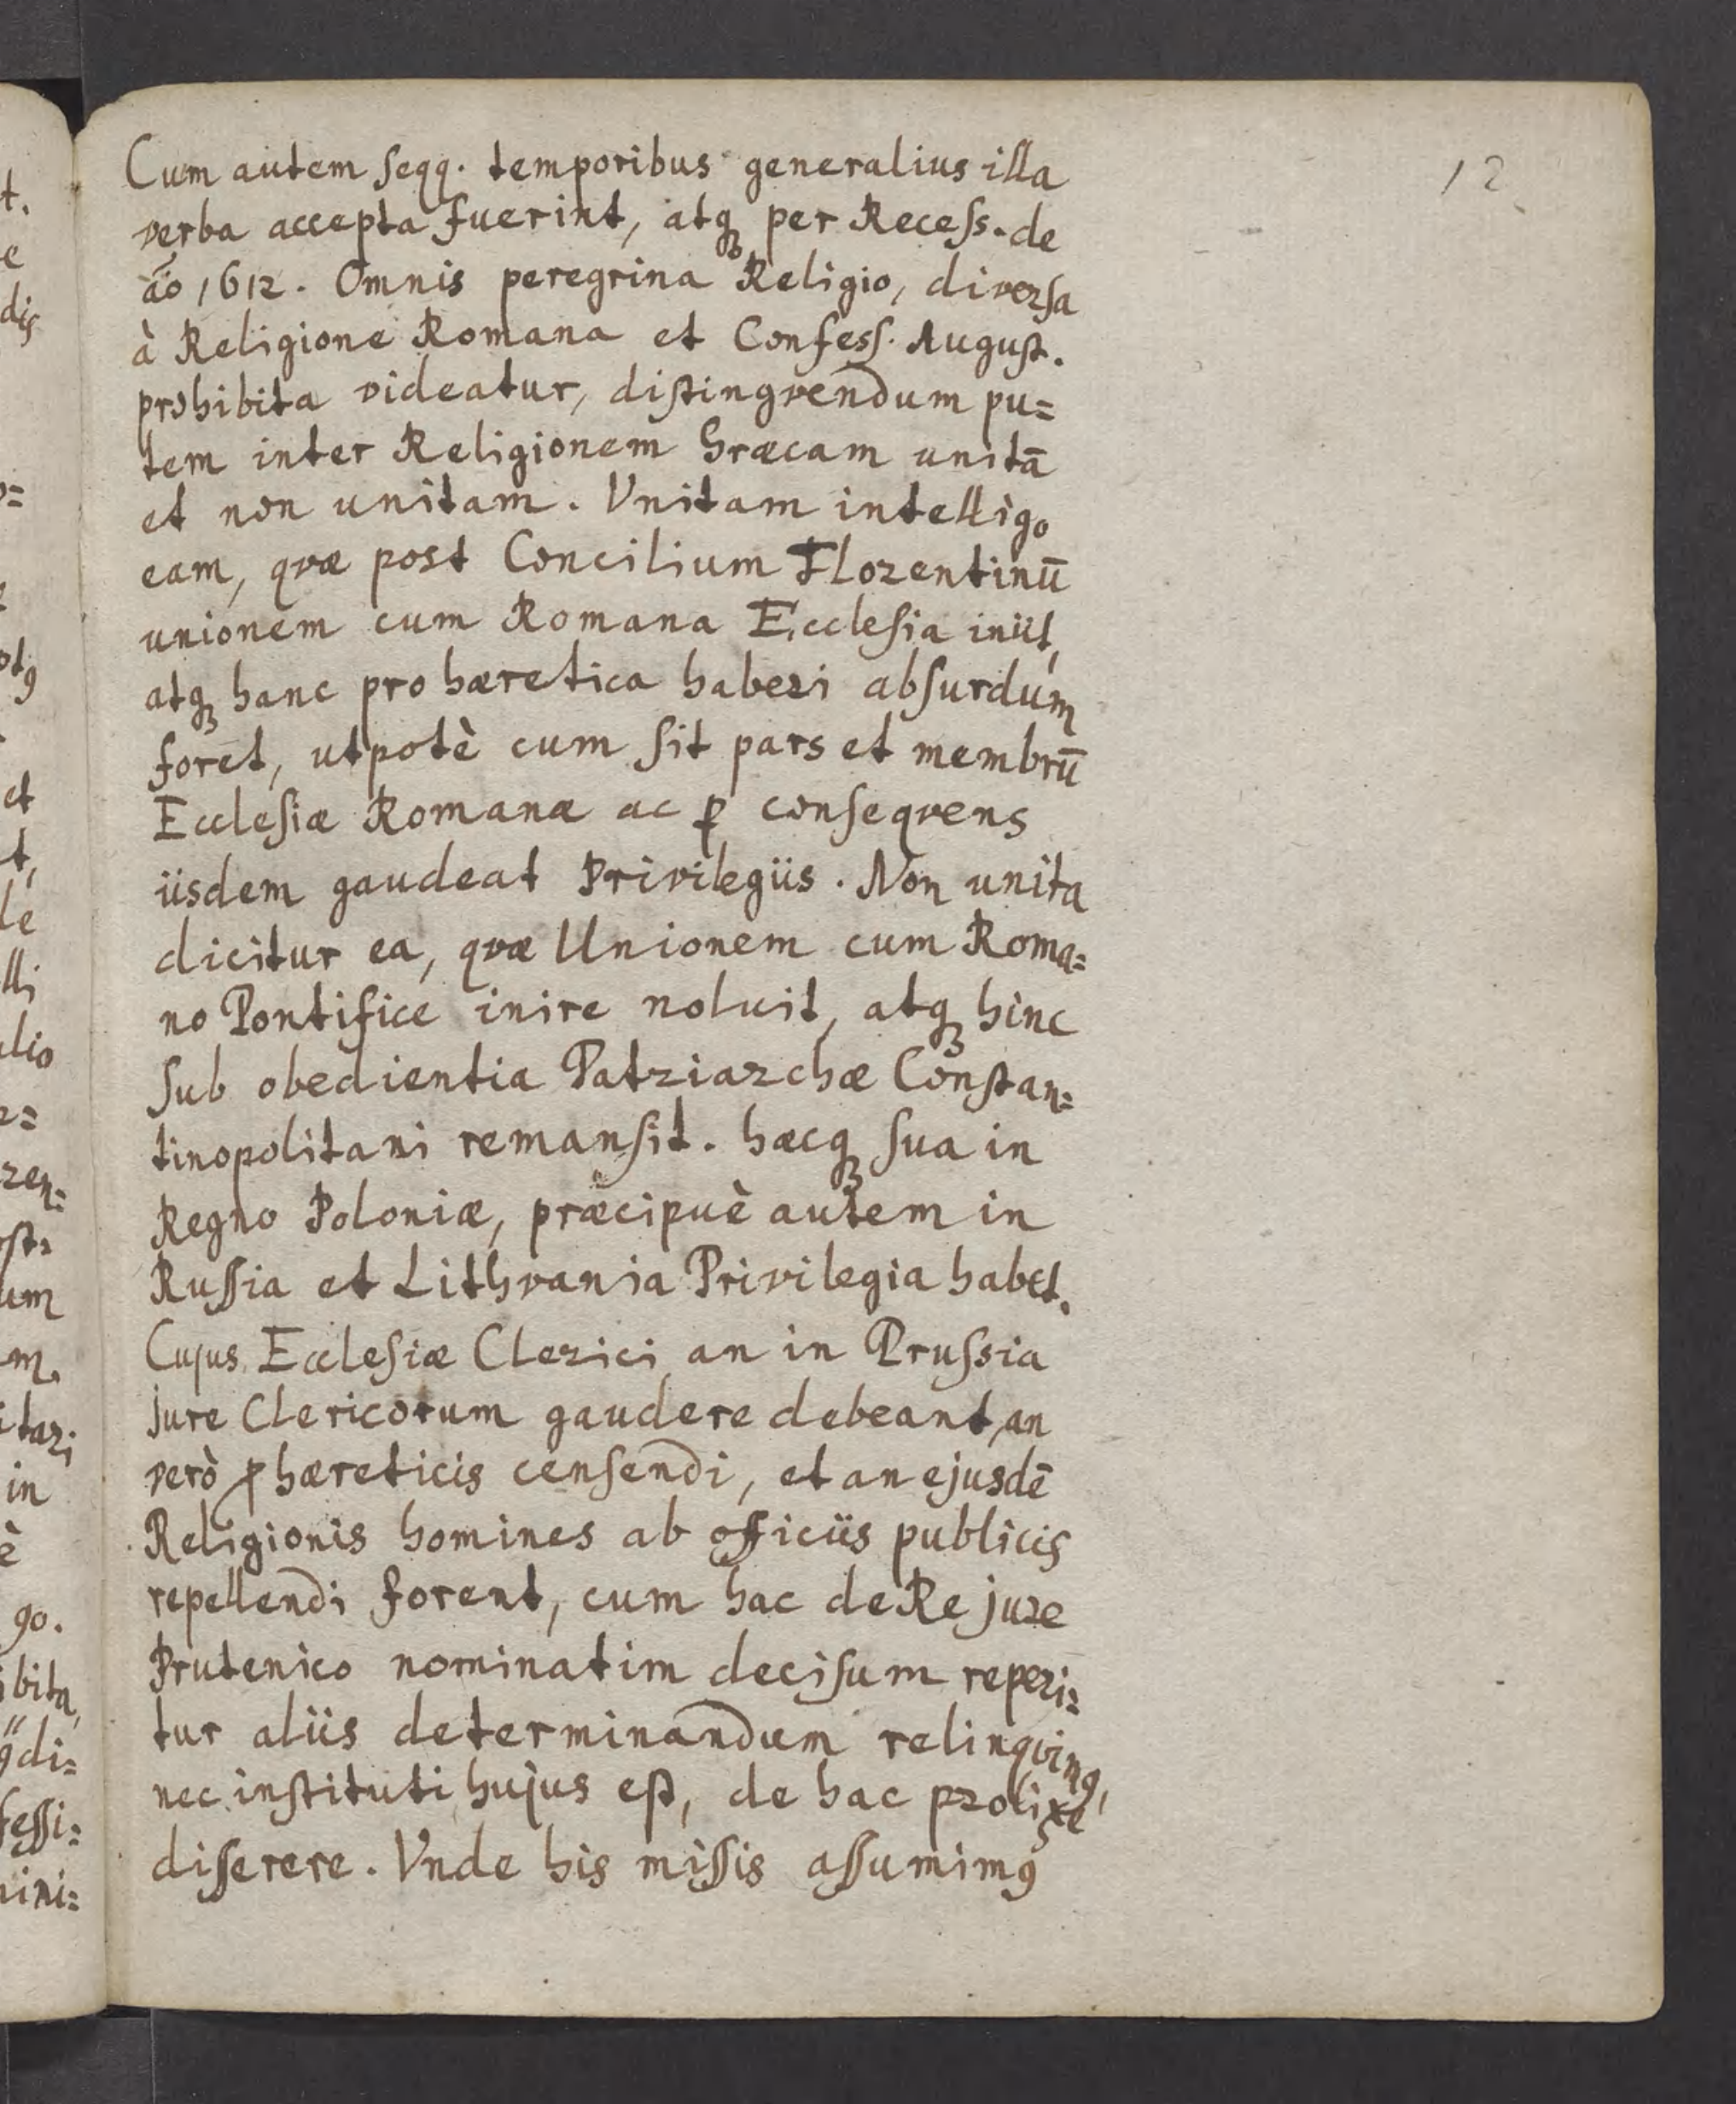 12
Cum autem ſeqq. temporibus generalius illa
verba accepta fuerint, atqꝫ per Receſs. de
aõ 1612. Omnis peregrina Religio, diverſa
à Religione Romana et Confeſſ. Auguſt.
prohibita videatur, diſtingvendum pu=
tem inter Religionem Græcam unitā
et non unitam. Vnitam intelligo
eam, qvæ post Concilium Florentinū
unionem cum Romana Eccleſia iniit,
atqꝫ hanc pro hæretica haberi abſurdum
foret, utpotè cum ſit pars et membrū
Eccleſiæ Romanæ ac ꝑ conſeqvens
iisdem gaudeat Privilegiis. Non unita
dicitur ea, qvæ Unionem cum Roma=
no Pontifice inire noluit, atqꝫ hinc
ſub obedientia Patriarchæ Conſtan=
tinopolitani remanſit. hæcqꝫ ſua in
Regno Poloniæ, præcipuè autem in
Ruſſia et Lithvania Privilegia habet.
Cujus Eccleſiæ Clerici an in Pruſsia
jure Clericorum gaudere debeant, an
verò ꝓ hæreticis cenſendi, et an ejusdē
Religionis homines ab officiis publicis
repellendi forent, cum hac de Re jure
Prutenico nominatim deciſum reperi=
tur aliis determinandum relinqvimꝰ,
nec inſtituti hujus eſt, de hac prolixè
diſſerere. Vnde his miſſis aſſumimꝰ